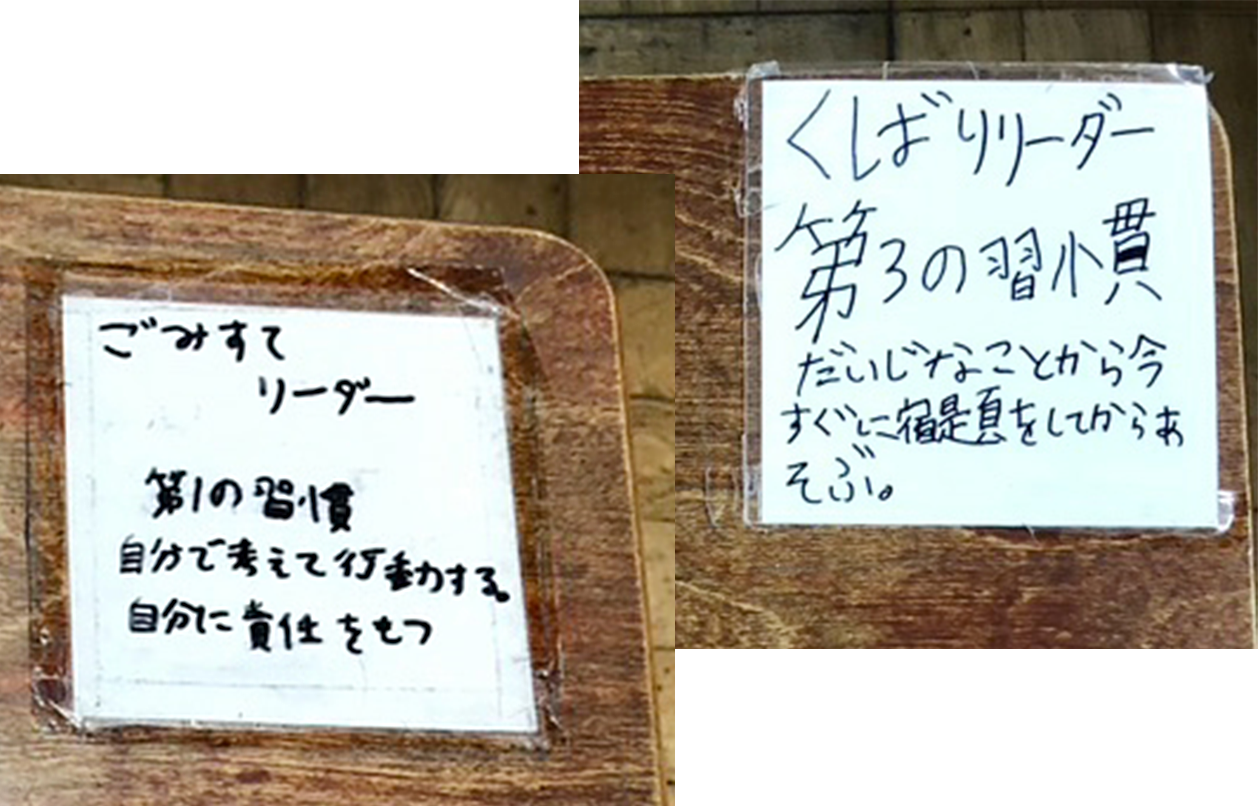 ごみすて
リーダー
第1の習慣
自分で考えて行動する。
自分に責任をもつ
くしばりリーダー
第3の習慣
だいじなことから今
すぐに宿題をしてからあ
そぶ。